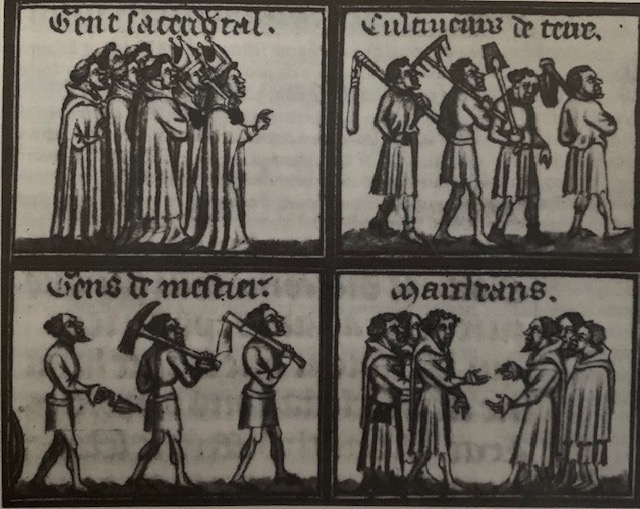 Gent sacerdotal.
Cultiueurs de terre.
Gens de mestier.
Marcheans.